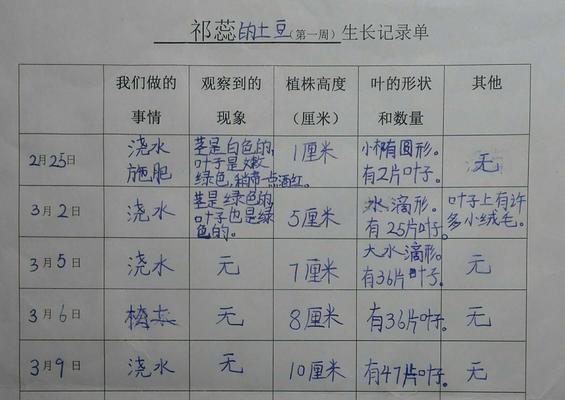 祁蕊的土豆(第一周)生长记录单
我们做的事情 观察到的现象 植株高度(厘米) 叶的形状和数量 其他
2月25日 浇水 施肥 茎是白色的,叶子是嫩绿色,稍带一点酒红。 1厘米 小椭圆形。有2片叶子。 无
3月2日 浇水 茎是绿色的,叶子也是绿色的。 5厘米 水滴形。有25片叶子。 叶子上有许多小绒毛。
3月5日 浇水 无 7厘米 大水滴形。有36片叶子。 无
3月6日 无 8厘米 有36片叶子。 无
3月9日 浇水 无 10厘米 有47片叶子。 无